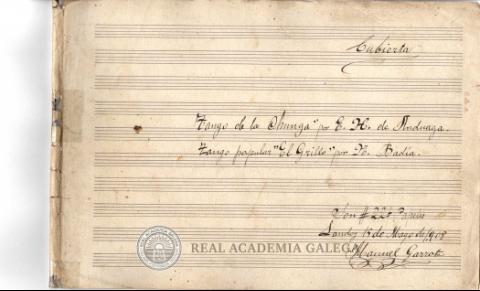 Cubierta
Tango de la Chunga" por E. H. de Anduaga.
Tango popular "El Grillo" por N. Badía.
Son
13 de Mayo de 1908
Manuel Garrote
REAL ACADEMIA GALEGA